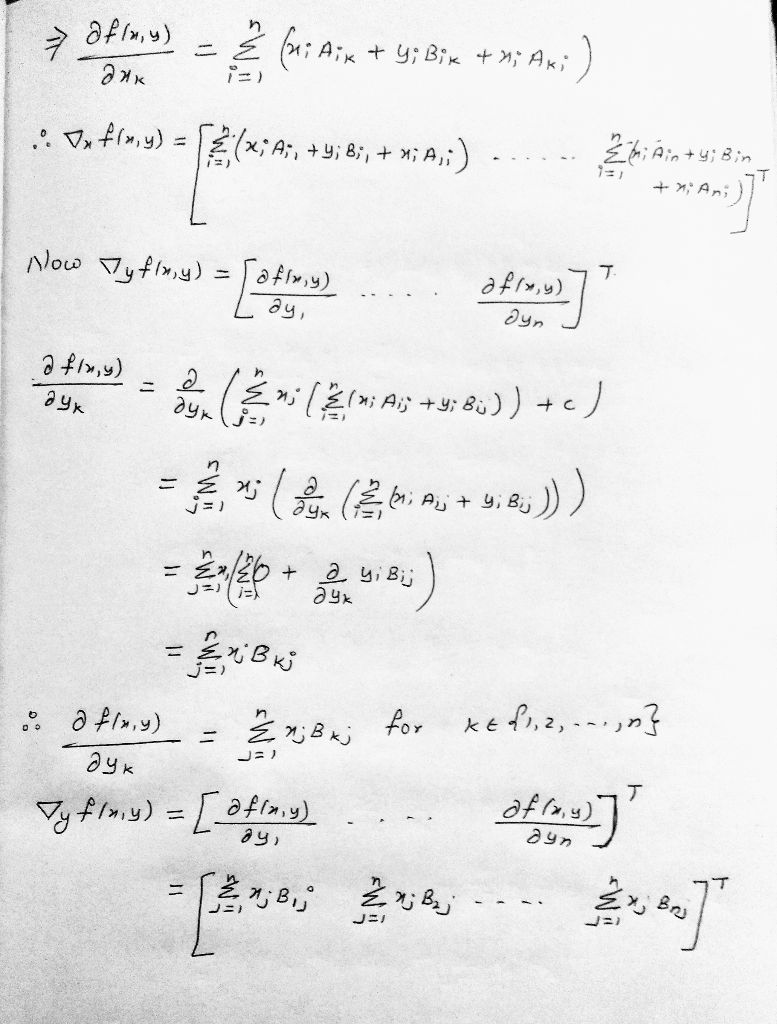 ⇒ ∂f(x,y)/∂x_k = Σ_{i=1}^{n} (x_i A_{ik} + y_i B_{ik} + x_i A_{ki})
∴ ∇_x f(x,y) = [Σ_{i=1}^{n} (x_i A_{i1} + y_i B_{i1} + x_i A_{1i}) ...... Σ_{i=1}^{n} (x_i A_{in} + y_i B_{in} + x_i A_{ni})]^T
Now ∇_y f(x,y) = [∂f(x,y)/∂y_1 ..... ∂f(x,y)/∂y_n]^T
∂f(x,y)/∂y_k = ∂/∂y_k (Σ_{j=1}^{n} x_j (Σ_{i=1}^{n} (x_i A_{ij} + y_i B_{ij})) + c)
= Σ_{j=1}^{n} x_j (∂/∂y_k (Σ_{i=1}^{n} (x_i A_{ij} + y_i B_{ij})))
= Σ_{j=1}^{n} x_j (Σ_{i=1}^{n} 0 + ∂/∂y_k y_i B_{ij})
= Σ_{j=1}^{n} x_j B_{kj}
∴ ∂f(x,y)/∂y_k = Σ_{j=1}^{n} x_j B_{kj} for k ∈ {1, 2, ---, n}
∇_y f(x,y) = [∂f(x,y)/∂y_1 .... ∂f(x,y)/∂y_n]^T
= [Σ_{j=1}^{n} x_j B_{1j} Σ_{j=1}^{n} x_j B_{2j} ---- Σ_{j=1}^{n} x_j B_{nj}]^T